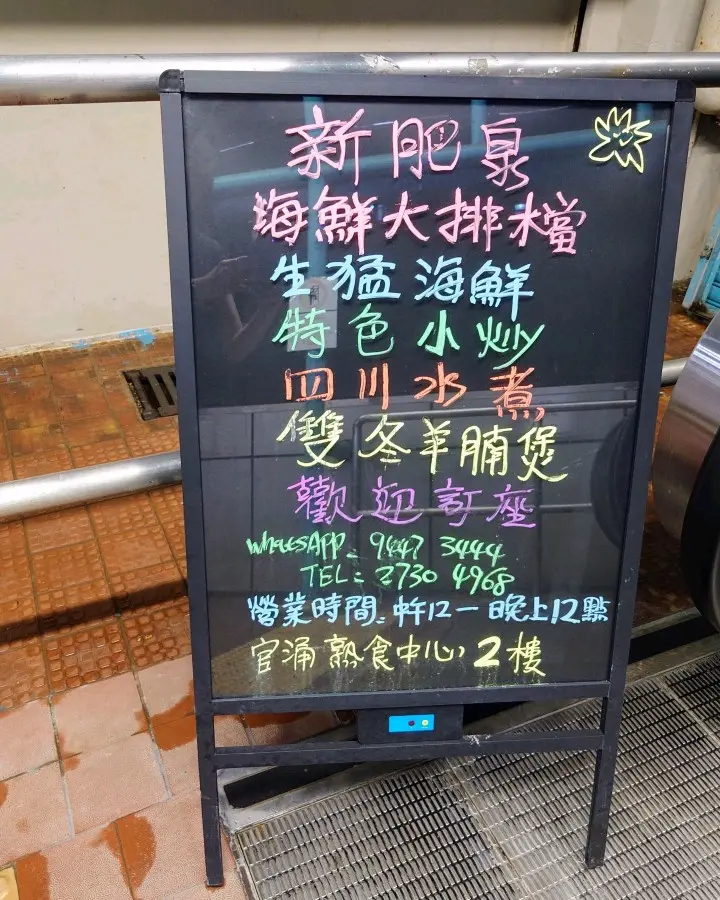 新肥泉
海鮮大排檔
生猛海鮮
特色小炒
四川水煮
雙冬羊腩煲
歡迎訂座
WhatsAPP: 9447 3444
TEL: 2730 4968
營業時間: 中午12一晚上12點
官涌熟食中心, 2樓